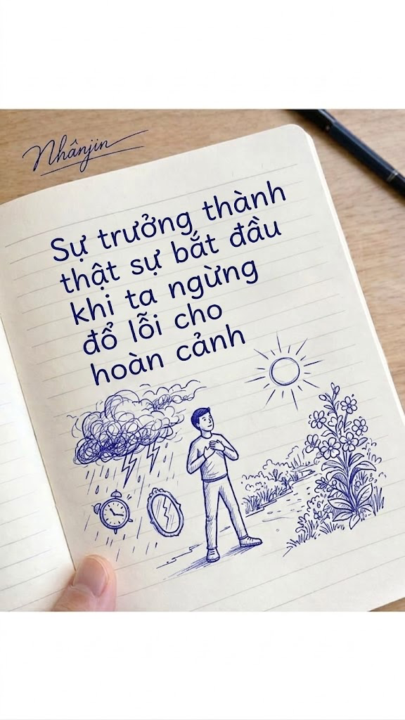 Nhânjin
Sự trưởng thành
thật sự bắt đầu
khi ta ngừng
đổ lỗi cho
hoàn cảnh